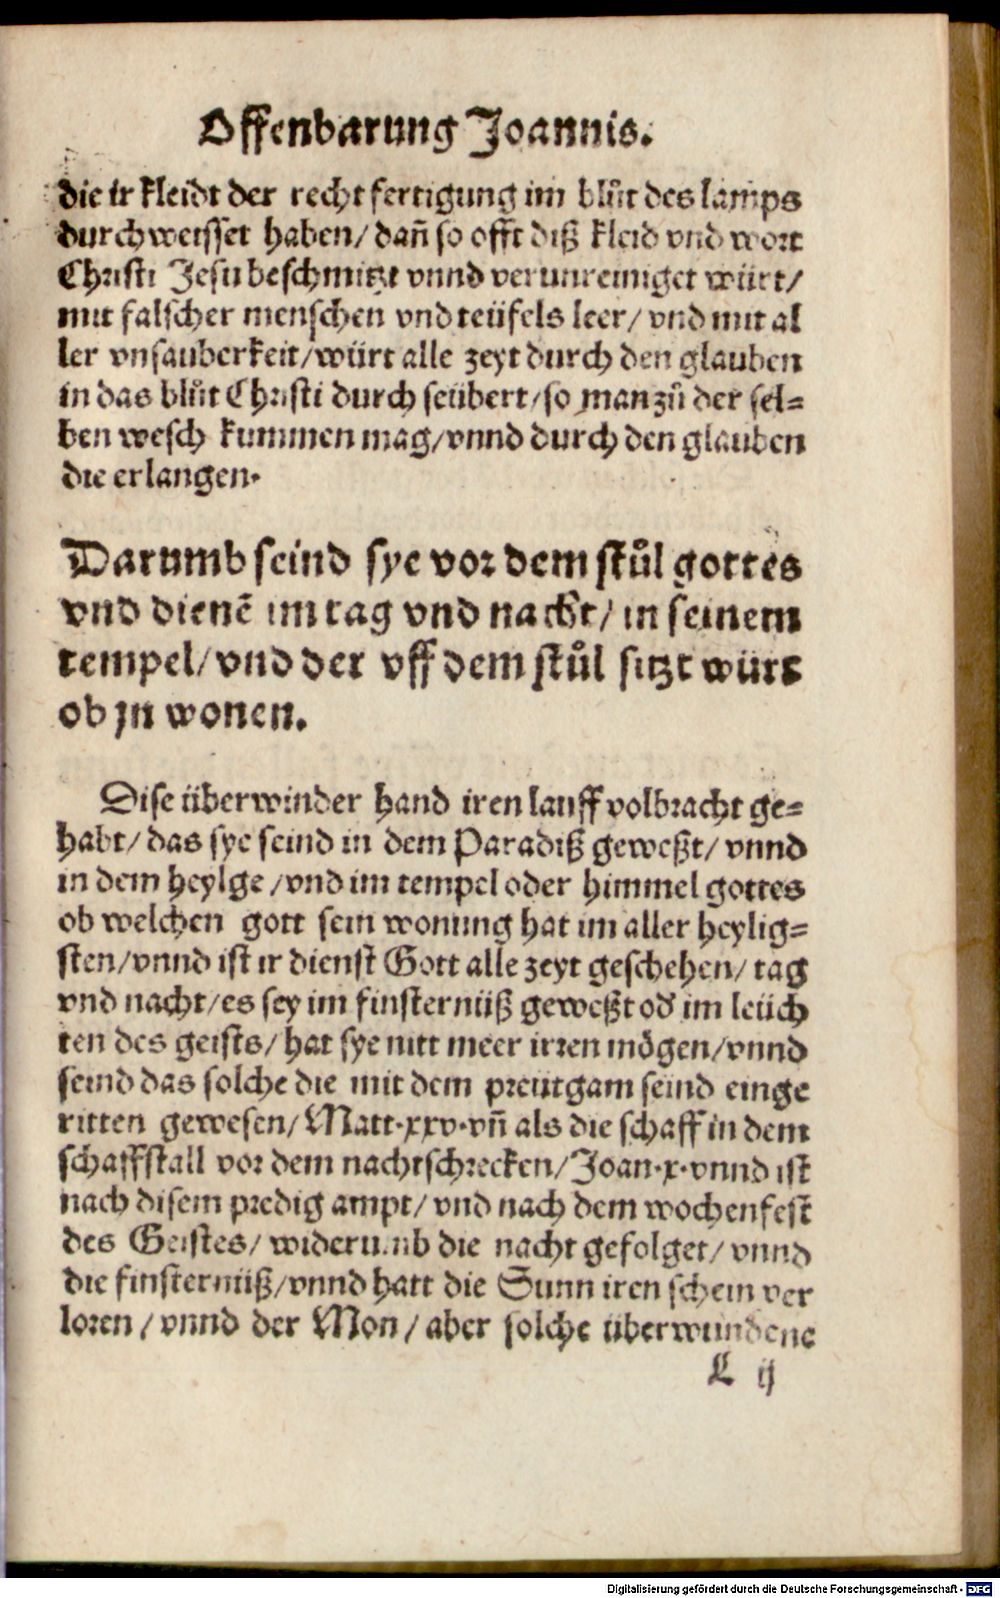 Offenbarung Joannis.
die ir kleidt der recht fertigung im blůt des lamps
durchweisset haben/ dañ so offt diß kleid vnd wort
Christi Jesu beschmitzt vnnd verunreiniget würt/
mit falscher menschen vnd teüfels leer/ vnd mit al
ler vnsauberkeit/ würt alle zeyt durch den glauben
in das blůt Christi durch seübert/ so man zů der sel=
ben wesch kummen mag/ vnnd durch den glauben
die erlangen.
Darumb seind sye vor dem stůl gottes
vnd dienē im tag vnd nacht/ in seinem
tempel/ vnd der vff dem stůl sitzt würt
ob jn wonen.
Dise überwinder hand iren lauff volbracht ge=
habt/ das sye seind in dem Paradiß geweßt/ vnnd
in dem heylge/ vnd im tempel oder himmel gottes
ob welchen gott sein wonung hat im aller heylig=
sten/ vnnd ist ir dienst Gott alle zeyt geschehen/ tag
vnd nacht/ es sey im finsternüß geweßt od' im leüch
ten des geists/ hat sye nitt meer irren mögen/ vnnd
seind das solche die mit dem preütgam seind einge
ritten gewesen/ Matt.xxv. vñ als die schaff in dem
schaffstall vor dem nachtschrecken/ Joan.x. vnnd ist
nach disem predig ampt/ vnd nach dem wochenfest
des Geistes/ widerumb die nacht gefolget/ vnnd
die finsternüß/ vnnd hatt die Sunn iren schein ver
loren/ vnnd der Mon/ aber solche überwundene
L ij
Digitalisierung gefördert durch die Deutsche Forschungsgemeinschaft - DFG